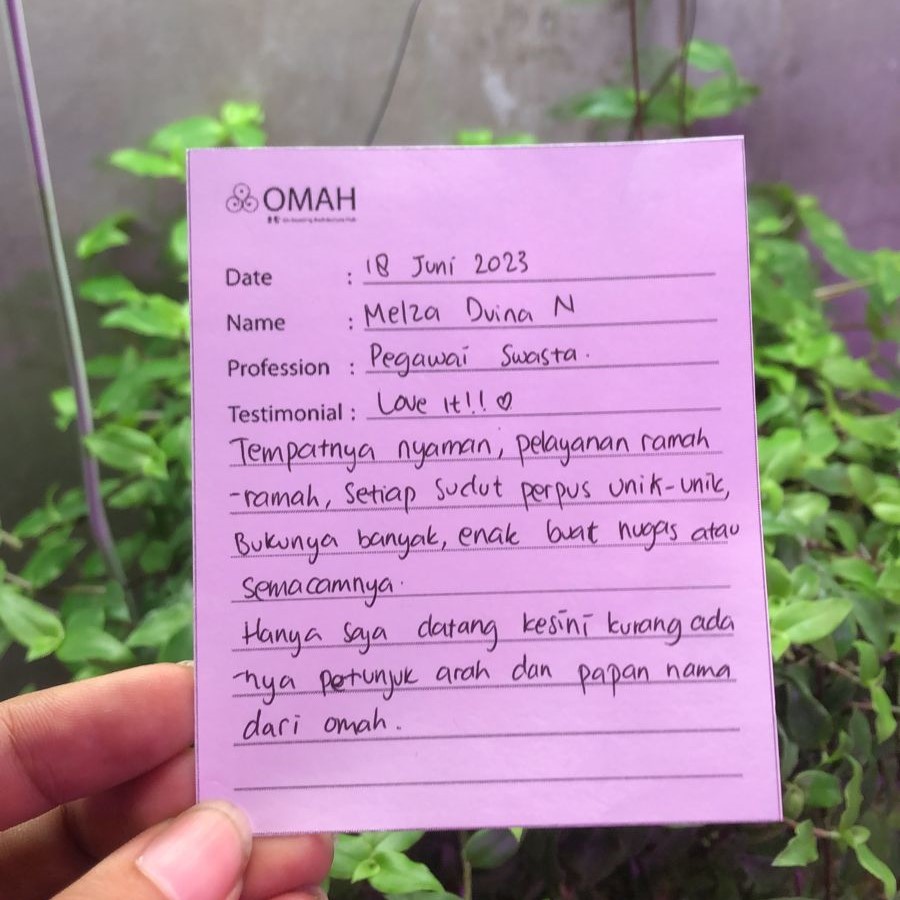 OMAH
Date : 18 Juni 2023
Name : Melza Dvina N
Profession : Pegawai Swasta.
Testimonial : Love it!! ♡
Tempatnya nyaman, pelayanan ramah
-ramah, setiap sudut perpus unik-unik,
Bukunya banyak, enak buat nugas atau
semacamnya.
Hanya saja datang kesini kurang ada
-nya petunjuk arah dan papan nama
dari omah.